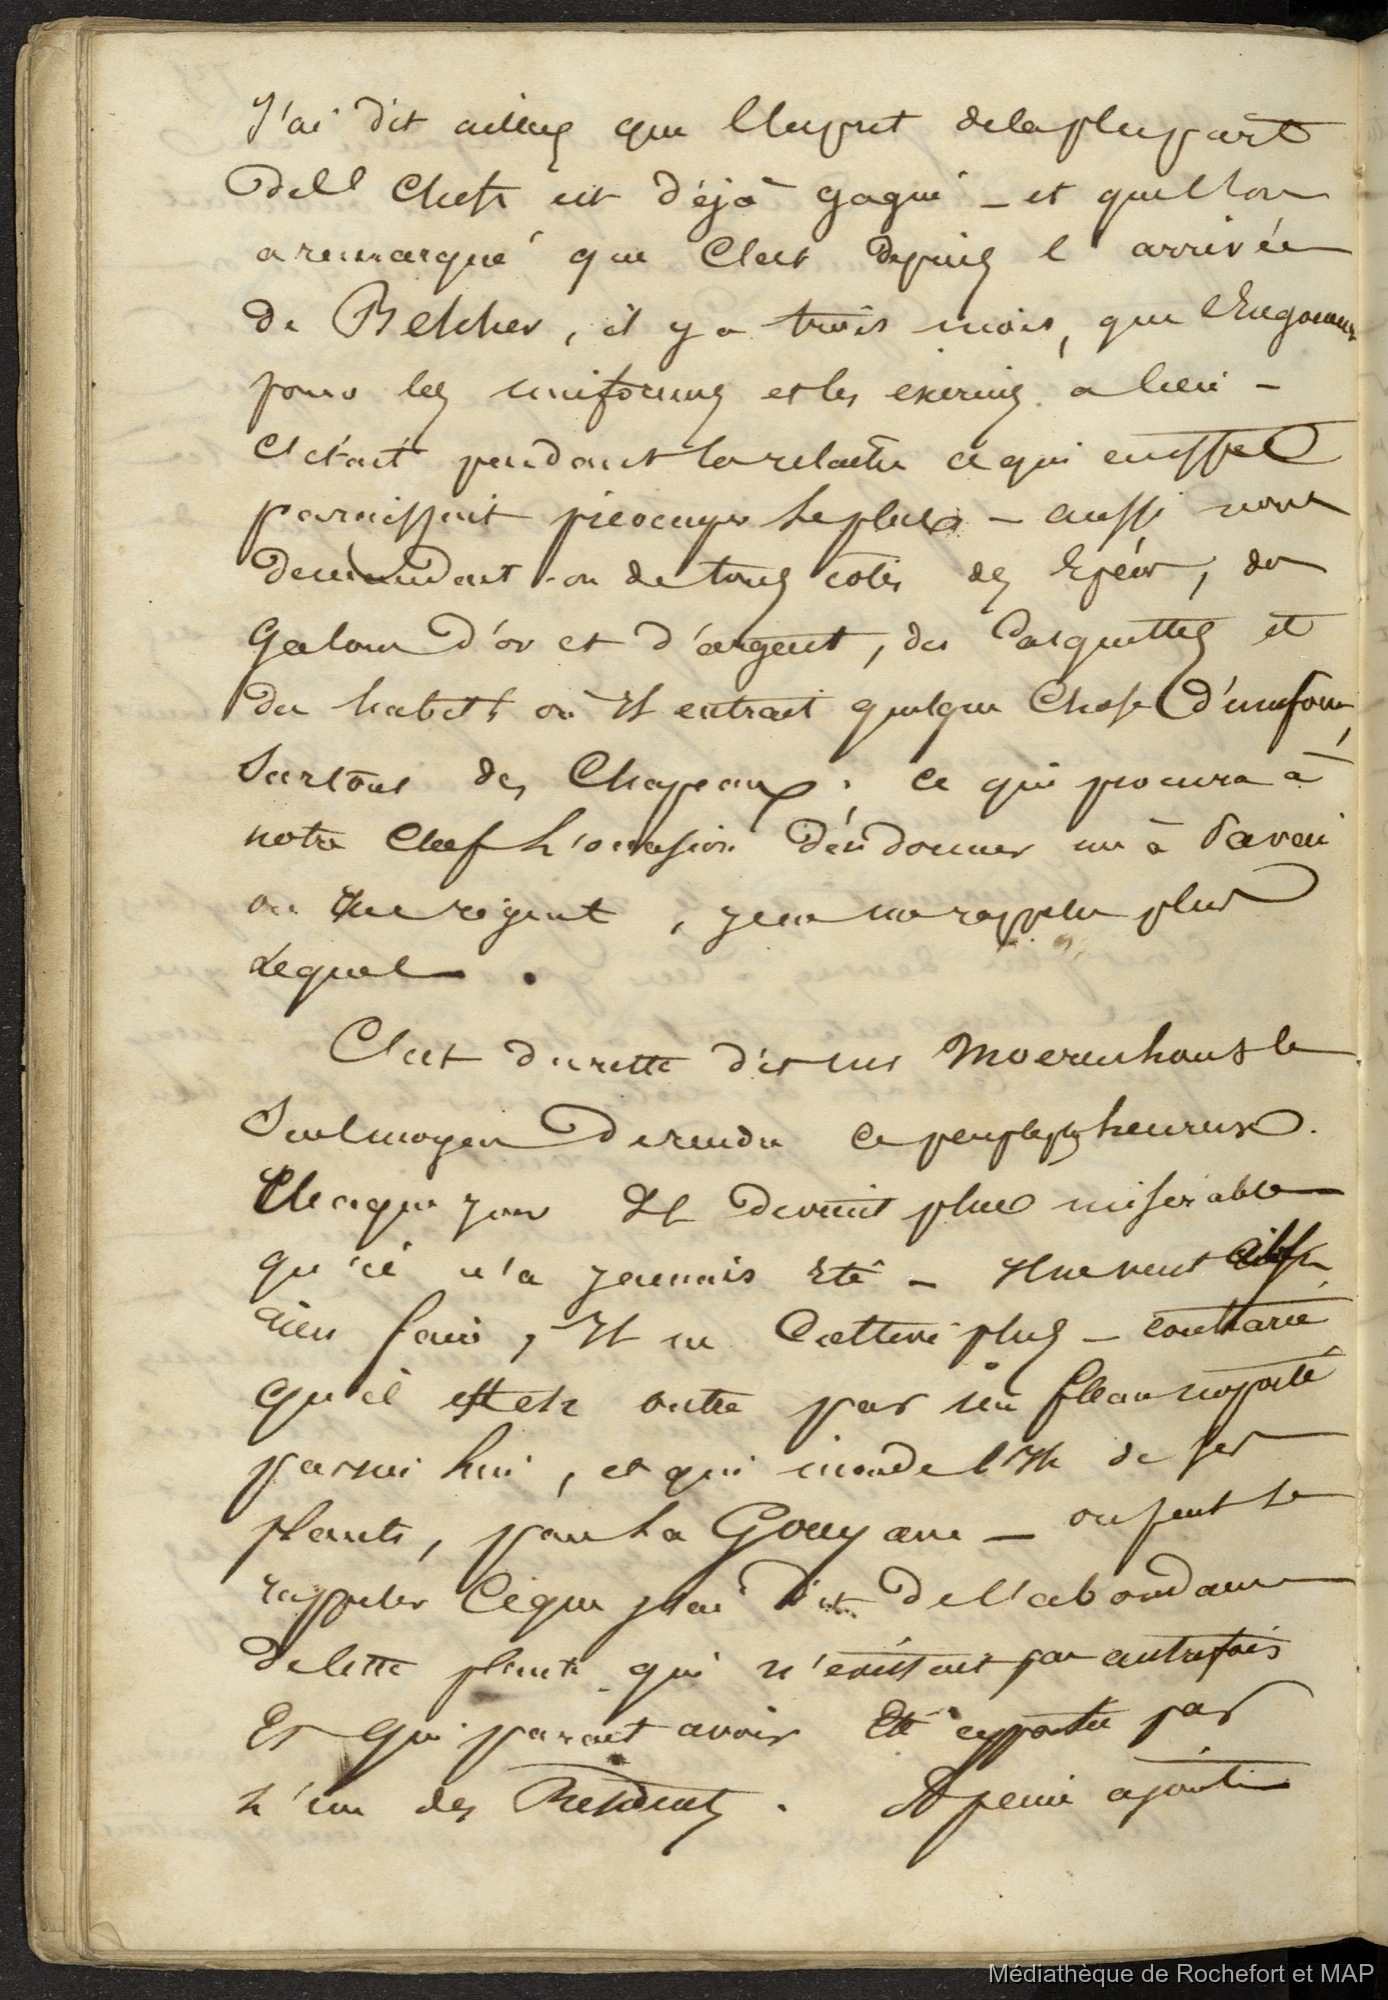 J'ai dit ailleurs que l'esprit de la plupart
des chefs est déjà gagné – et que l'on
a remarqué que c'est depuis l'arrivée
de Belcher, il y a trois mois, que l'engouement
pour les uniformes et les exercices a lieu –
c'était pendant la relache ce qui en effet
paraissait préocuper le plus – aussi nous
demandait-on de tous cotés des Epées, des
Galons d'or et d'argent, des Casquettes et
des habits où Il entrait quelque chose d'uniforme,
surtout des Chapeaux ; ce qui procura à
notre chef l'occasion d'en donner un à Pavaï
ou au régent, je ne me rappelle plus
lequel.
C'est du reste dit M. Moerenhout le
seul moyen de rendre ce peuple heureux.
Chaque jour Il devient plus misérable
qu'il n'a jamais Eté – Il ne veut
rien faire, Il ne Cultive plus – contrarié
qu'il est en outre par un fleau importé
parmi lui, et qui inonde l'Ile de ses
plants, par la Gouyave – on peut se
rappeler ce que j'ai dit de l'abondance
de cette plante qui n'existait pas autrefois
Et qui parait avoir Eté apportée par
l'un des Résidents. A peine ajoute